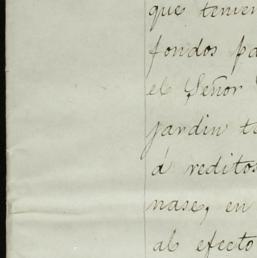 que tenem
fondos pa
el Señor
jardin t
á reditos
nase, en
al efecto